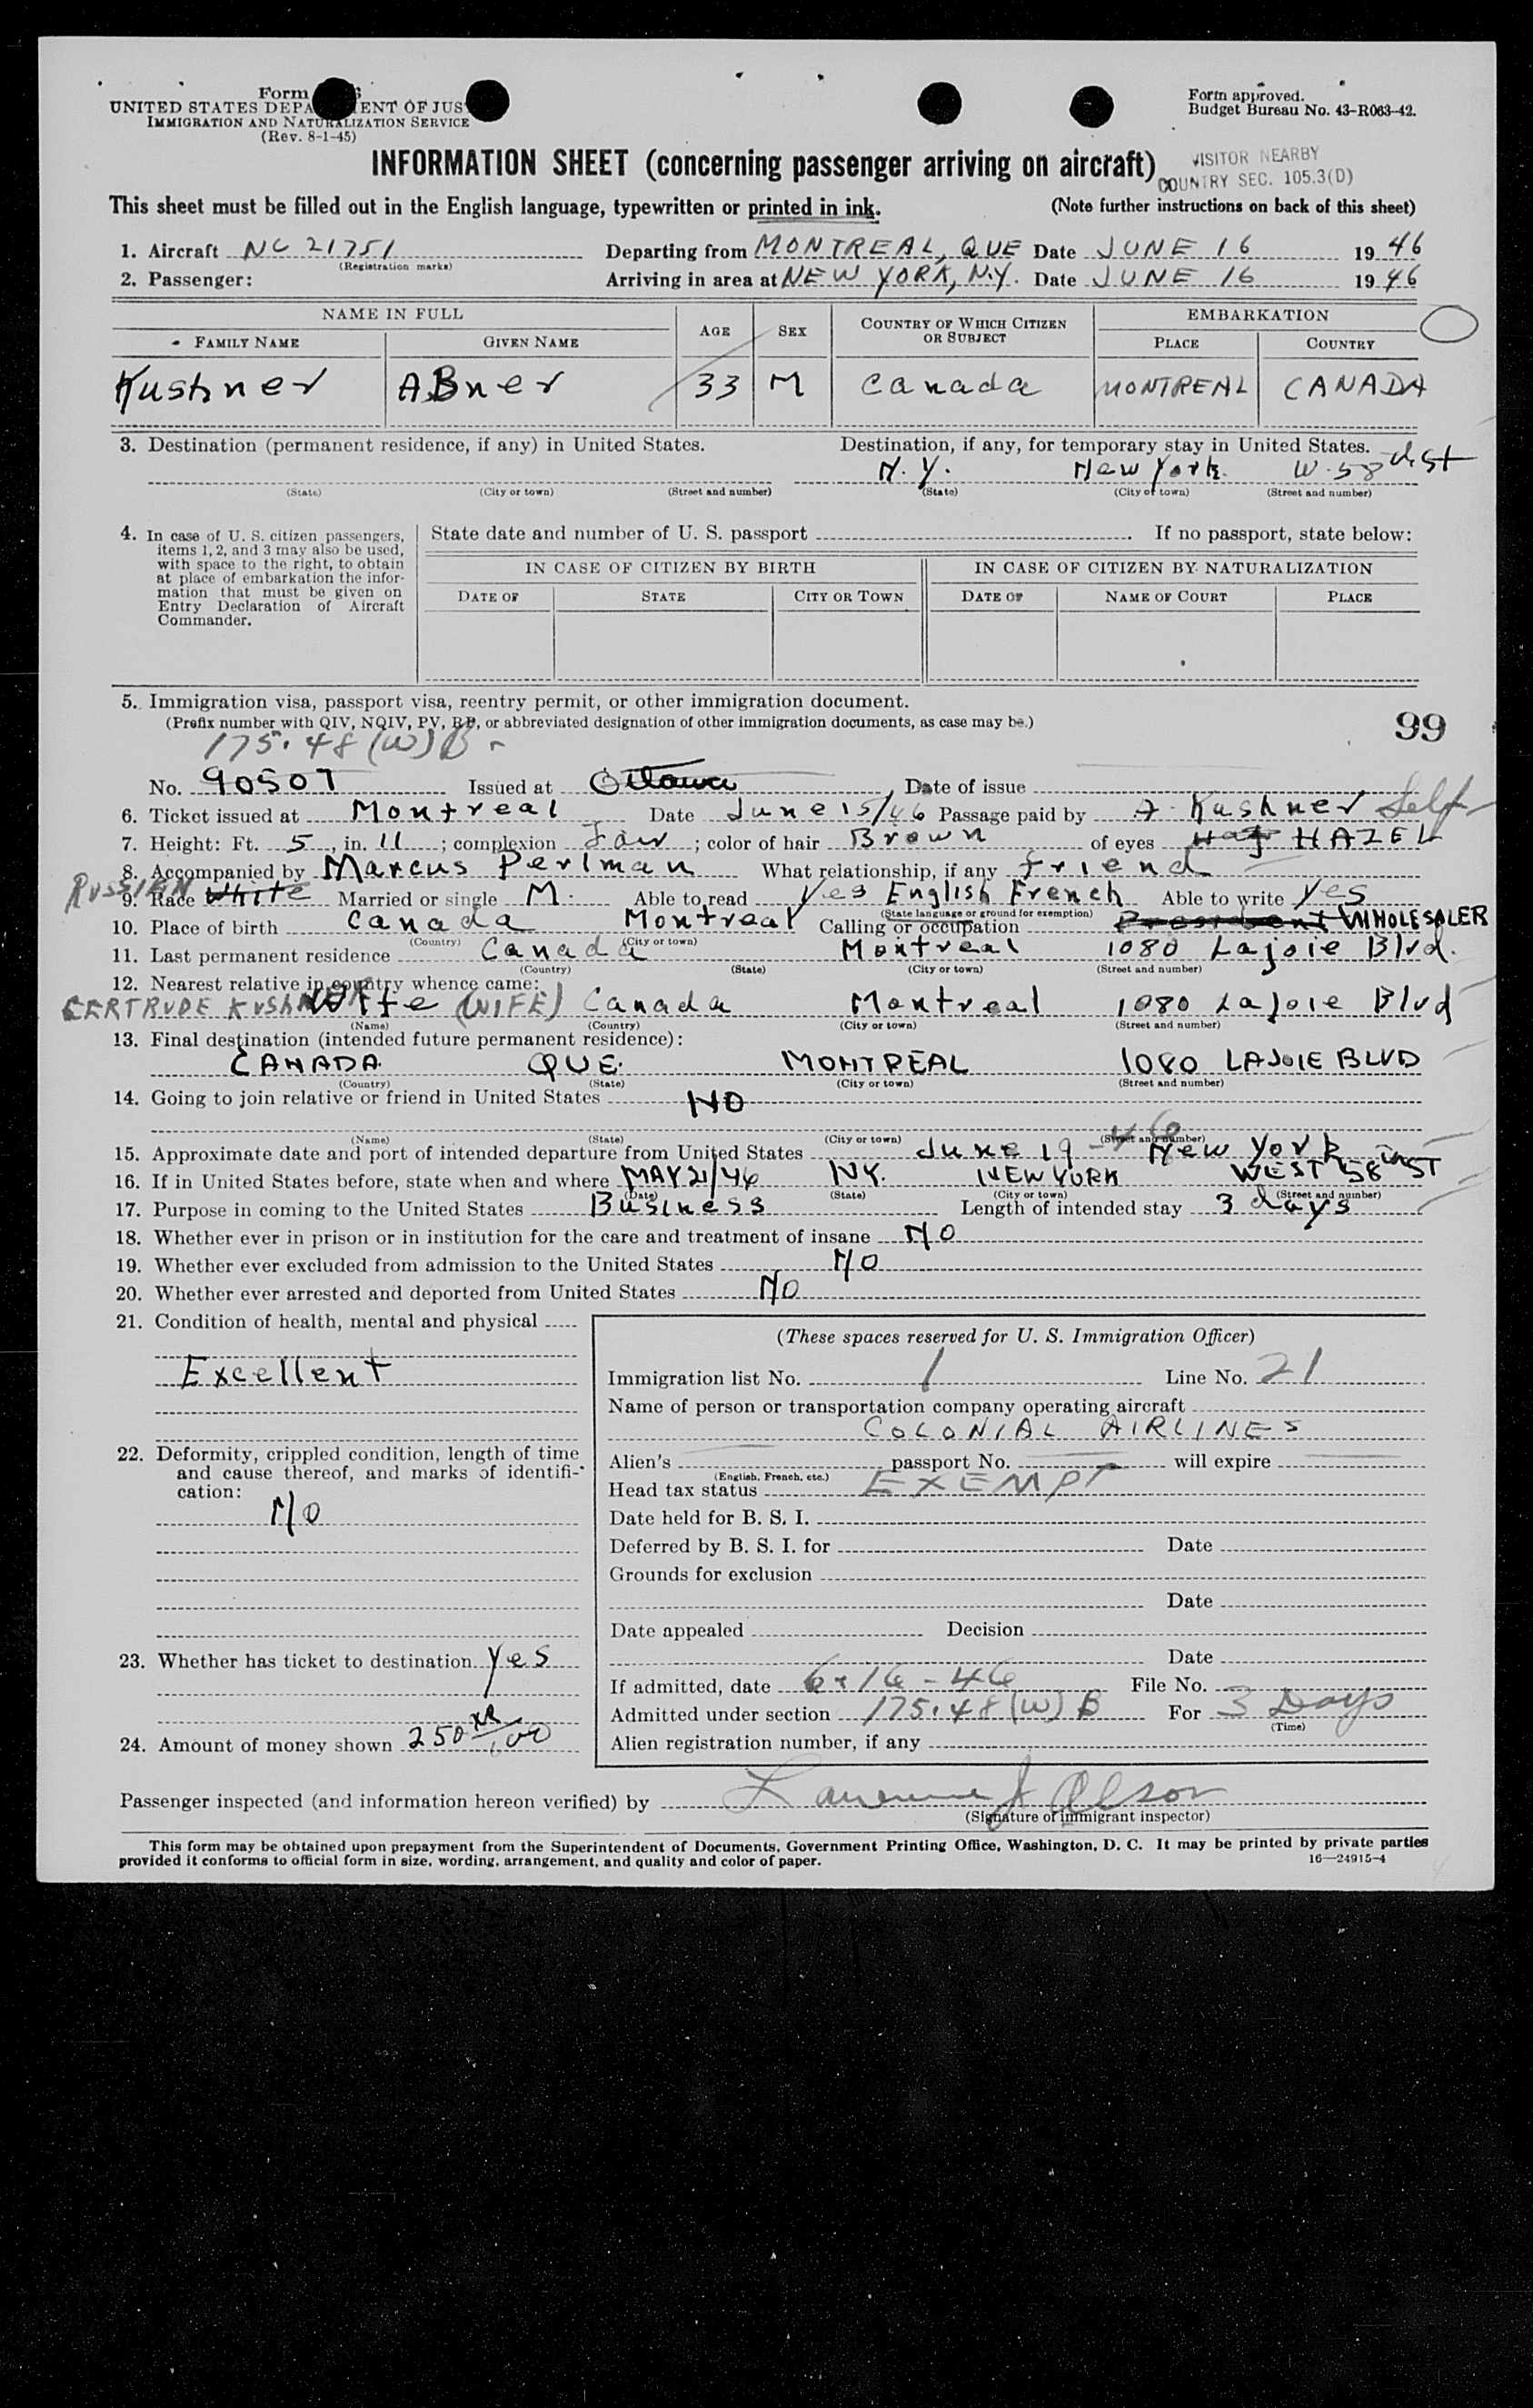 Form
UNITED STATES DEPA ENT OF JUS
IMMIGRATION AND NATURALIZATION SERVICE
(Rev. 8-1-45)
Form approved.
Budget Bureau No. 43-R063-42.
INFORMATION SHEET (concerning passenger arriving on aircraft)
VISITOR NEARBY
COUNTRY SEC. 105.3(D)
This sheet must be filled out in the English language, typewritten or printed in ink. (Note further instructions on back of this sheet)
1. Aircraft NC 21751 Departing from MONTREAL, QUE Date JUNE 16 1946
(Registration marks)
2. Passenger: Arriving in area at NEW YORK, N.Y. Date JUNE 16 1946
NAME IN FULL AGE SEX COUNTRY OF WHICH CITIZEN OR SUBJECT EMBARKATION
FAMILY NAME GIVEN NAME PLACE COUNTRY
Kushner ABner 33 M Canada MONTREAL CANADA
3. Destination (permanent residence, if any) in United States. Destination, if any, for temporary stay in United States.
N.Y. New York. W. 58 St
(State) (City or town) (Street and number) (State) (City of town) (Street and number)
4. In case of U. S. citizen passengers, items 1, 2, and 3 may also be used, with space to the right, to obtain at place of embarkation the information that must be given on Entry Declaration of Aircraft Commander.
State date and number of U. S. passport . If no passport, state below:
IN CASE OF CITIZEN BY BIRTH IN CASE OF CITIZEN BY NATURALIZATION
DATE OF STATE CITY OR TOWN DATE OF NAME OF COURT PLACE
5. Immigration visa, passport visa, reentry permit, or other immigration document.
(Prefix number with QIV, NQIV, PV, RP, or abbreviated designation of other immigration documents, as case may be.)
99
175.48 (W) B
No. 90507 Issued at Ottawa, Date of issue
6. Ticket issued at Montreal Date June 15/46 Passage paid by A Kushner Self
7. Height: Ft. 5, in. 11; complexion Fair; color of hair Brown of eyes HAZEL
8. Accompanied by Marcus Perlman What relationship, if any friend
RUSSIAN
9. Race White Married or single M. Able to read Yes English French Able to write Yes
(State language or ground for exemption)
10. Place of birth Canada Montreal Calling or occupation President WHOLESALER
(Country) (City or town)
11. Last permanent residence Canada Montreal 1080 Lajoie Blvd.
(Country) (State) (City or town) (Street and number)
12. Nearest relative in country whence came:
GERTRUDE KUSHNER Wife (WIFE) Canada Montreal 1080 Lajoie Blvd
(Name) (Country) (City or town) (Street and number)
13. Final destination (intended future permanent residence):
CANADA QUE. MONTREAL 1080 LAJOIE BLVD
(Country) (State) (City or town) (Street and number)
14. Going to join relative or friend in United States NO
(Name) (State) (City or town) (Street and number)
15. Approximate date and port of intended departure from United States June 19-46 New York
16. If in United States before, state when and where MAY 21/46 NY. NEW YORK WEST 58 ST
(Date) (State) (City or town) (Street and number)
17. Purpose in coming to the United States Business Length of intended stay 3 days
18. Whether ever in prison or in institution for the care and treatment of insane NO
19. Whether ever excluded from admission to the United States NO
20. Whether ever arrested and deported from United States NO
21. Condition of health, mental and physical
Excellent
22. Deformity, crippled condition, length of time and cause thereof, and marks of identification:
NO
23. Whether has ticket to destination Yes
24. Amount of money shown 250 xx/100
(These spaces reserved for U. S. Immigration Officer)
Immigration list No. 1 Line No. 21
Name of person or transportation company operating aircraft
COLONIAL AIRLINES
Alien's passport No. will expire
(English, French, etc.)
Head tax status EXEMPT
Date held for B. S. I.
Deferred by B. S. I. for Date
Grounds for exclusion
Date
Date appealed Decision
Date
If admitted, date 6-16-46 File No.
Admitted under section 175.48 (W) B For 3 Days
(Time)
Alien registration number, if any
Passenger inspected (and information hereon verified) by Lawrence J Olson
(Signature of immigrant inspector)
This form may be obtained upon prepayment from the Superintendent of Documents, Government Printing Office, Washington, D. C. It may be printed by private parties
provided it conforms to official form in size, wording, arrangement, and quality and color of paper. 16—24915-4